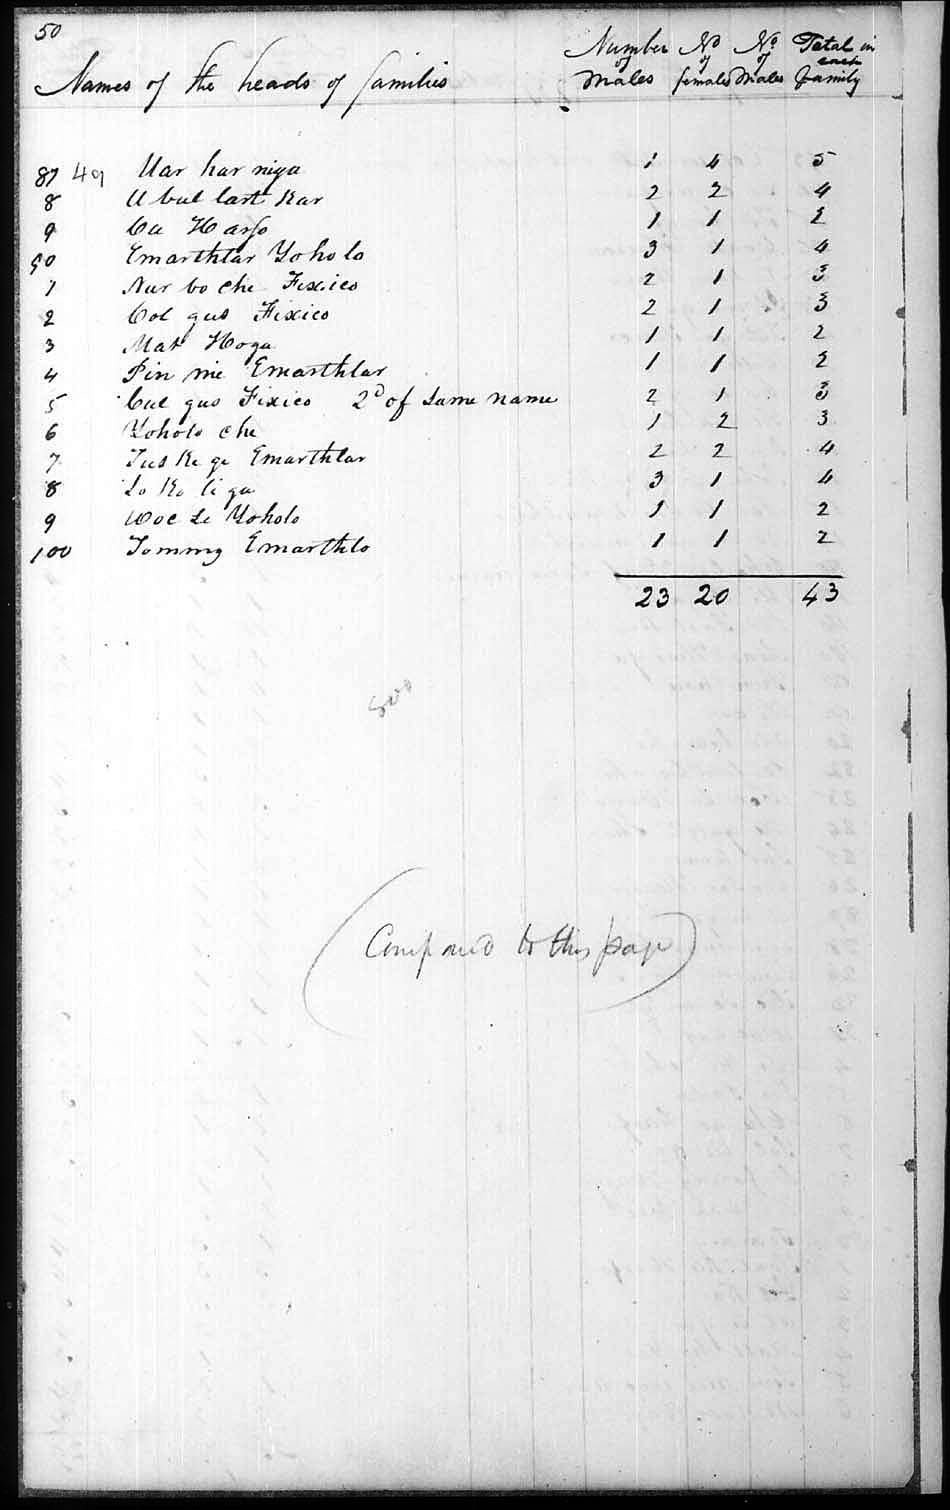 50
Names of the heads of families Number of Males No of females No of Males Total in each family
87 49 Uar har niga 1 4 5
8 U bul lart Kar 2 2 4
9 Cu Harjo 1 1 2
90 Emarthlar Yoholo 3 1 4
1 Nur bo che Fixico 2 1 3
2 Col gus Fixico 2 1 3
3 Mat Hoga 1 1 2
4 Pin me Emarthlar 1 1 2
5 Cul gus Fixico 2d of same name 2 1 3
6 Yoholo che 1 2 3
7 Tus Ke ge Emarthlar 2 2 4
8 Lo Ko li ga 3 1 4
9 Woc se Yoholo 1 1 2
100 Tommy Emarthlo 1 1 2
23 20 43
500
(Compared to this page)